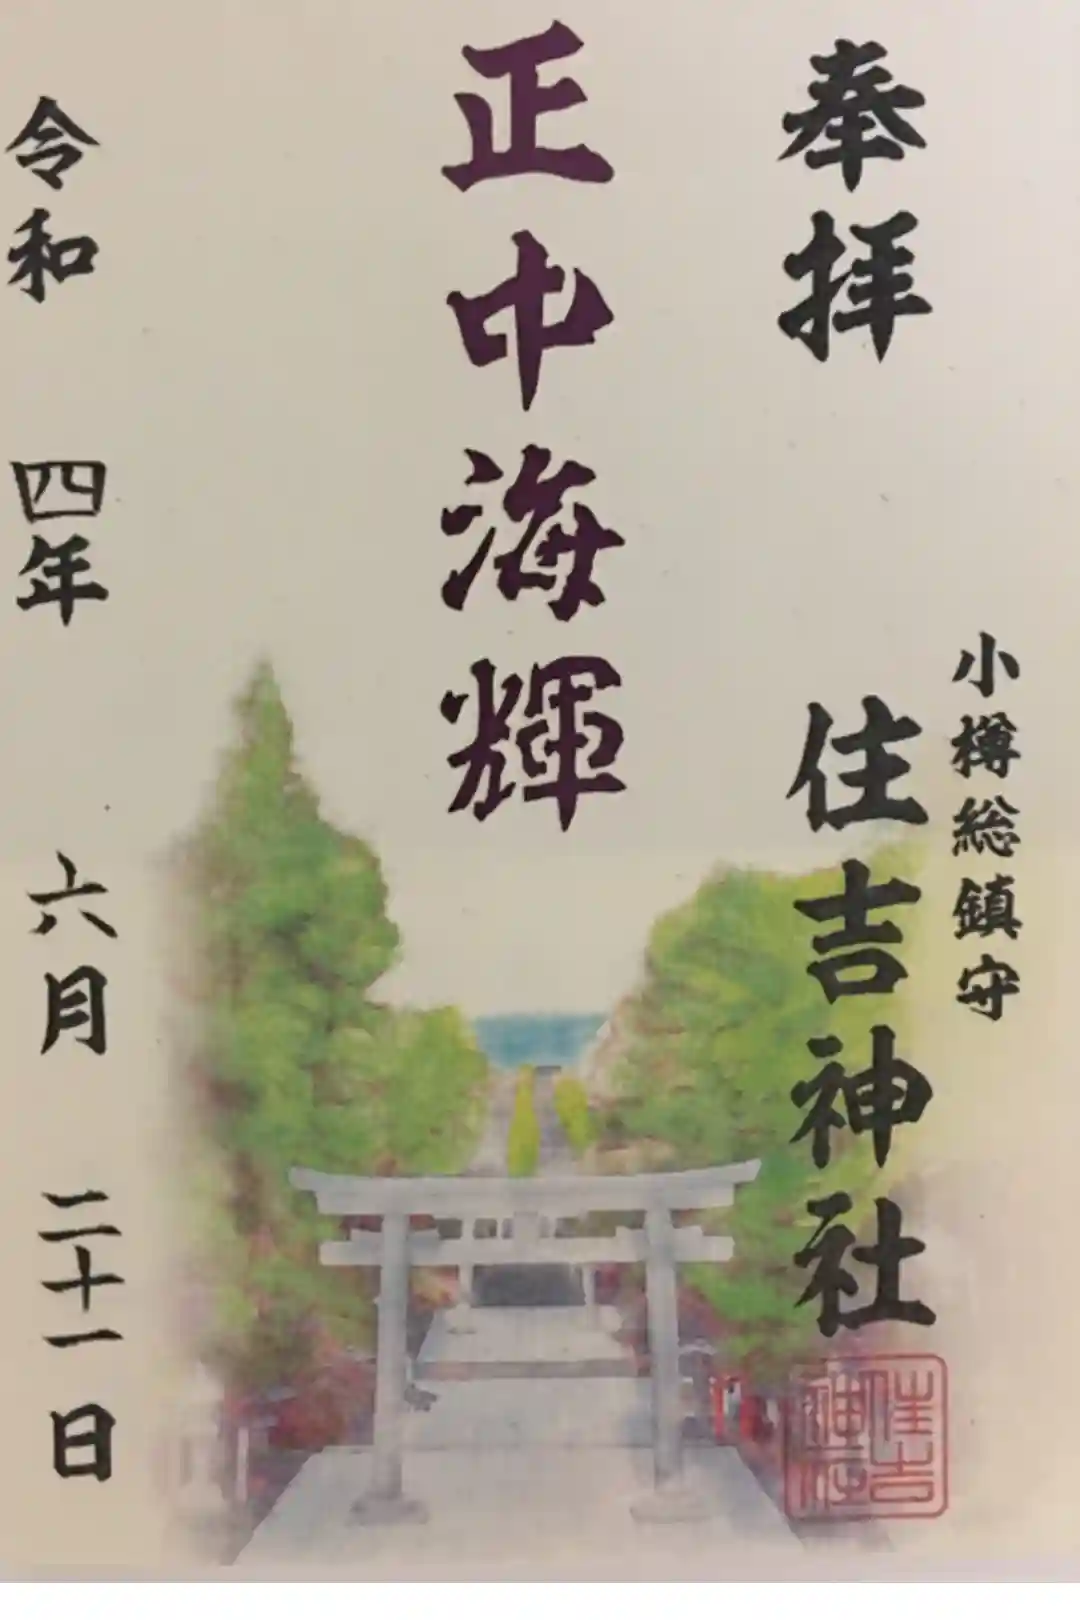 奉拝
小樽総鎮守
住吉神社
住吉神社
正中海輝
令和四年六月二十一日